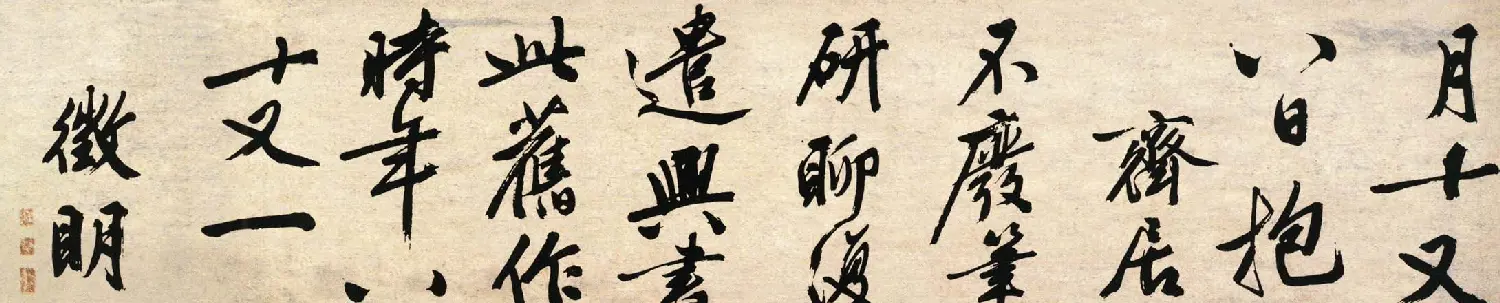 月十又
八日抱
齋居
不廢筆
研聊復
遣興書
此舊作
時年八
十又一
徵明